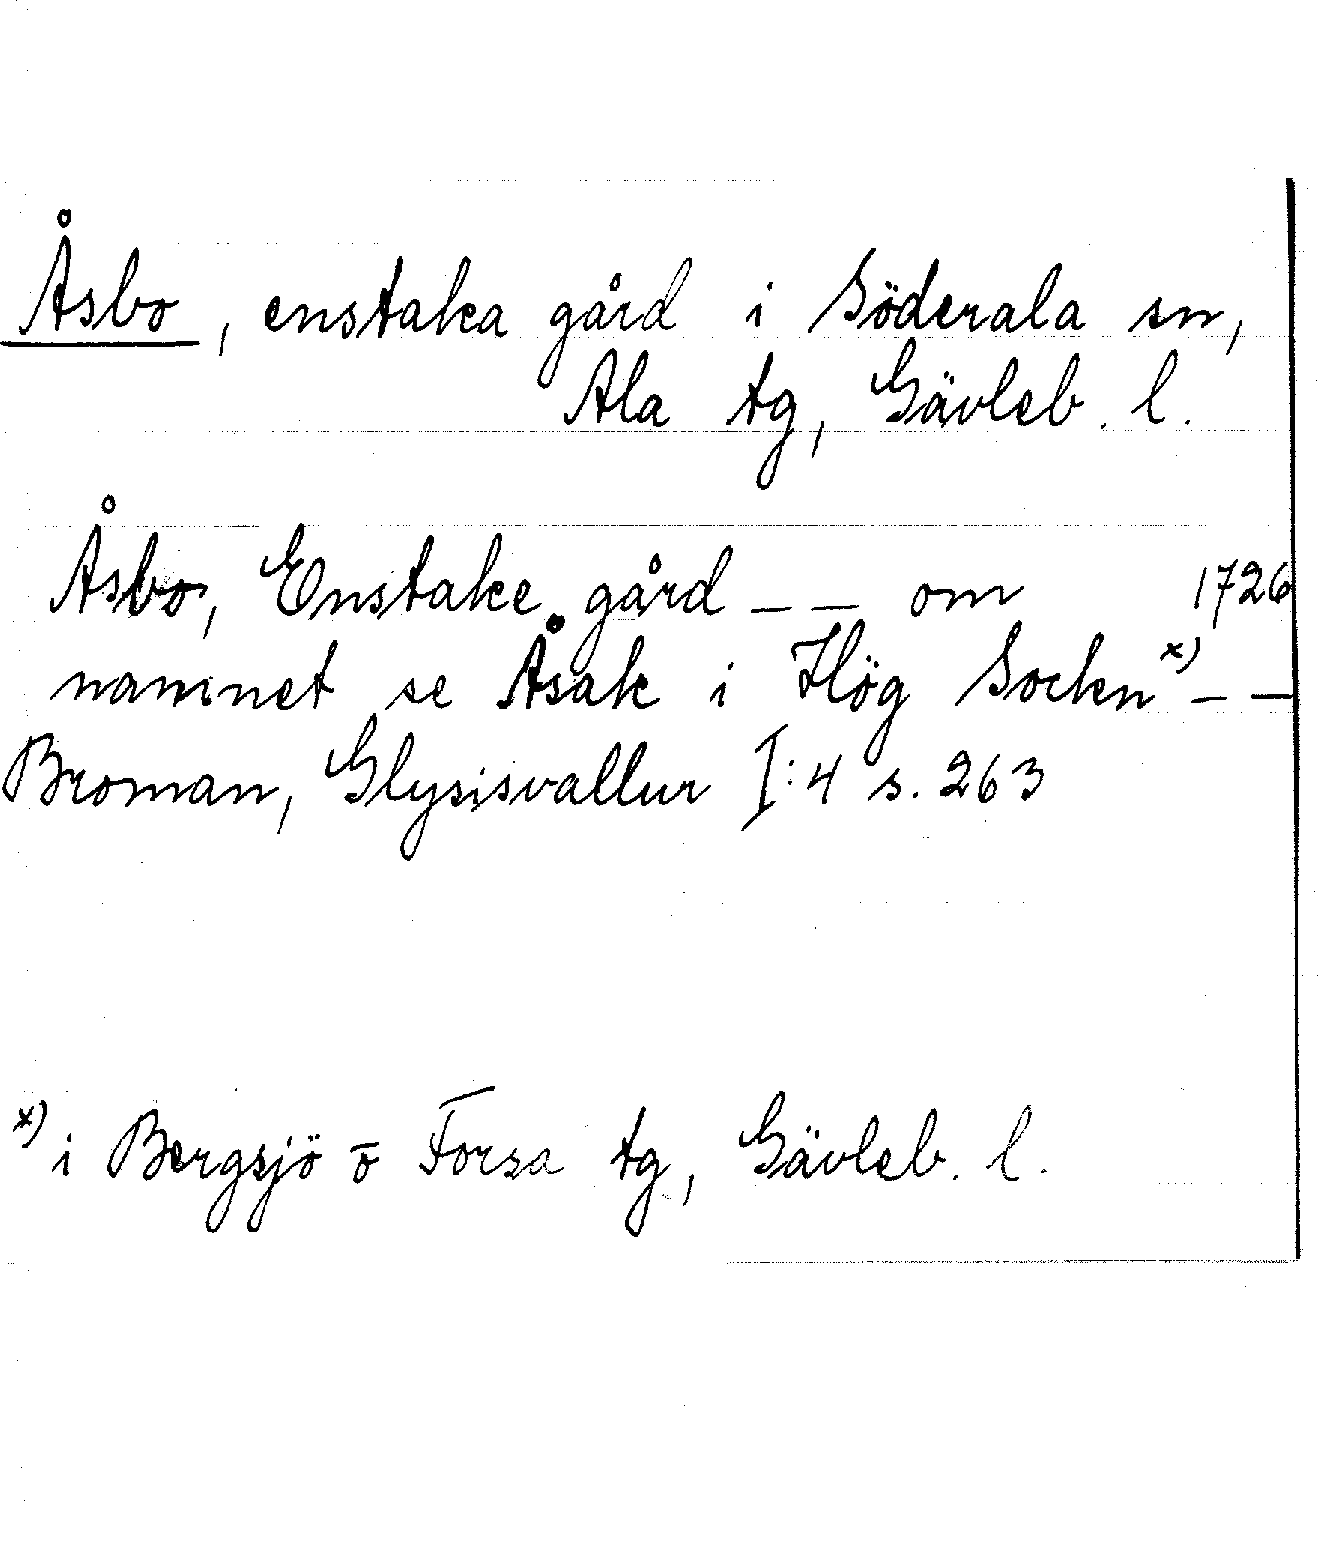 Åsbo, enstaka gård i Söderala sn,
Ala tg, Gävleb. l.
Åsbo, Enstake gård _ _ om 1726
namnet se Åsak i Hög Sockn x) _ _
Broman, Glysisvallur I:4 s. 263
x) i Bergsjö o Forsa tg, Gävleb. l.